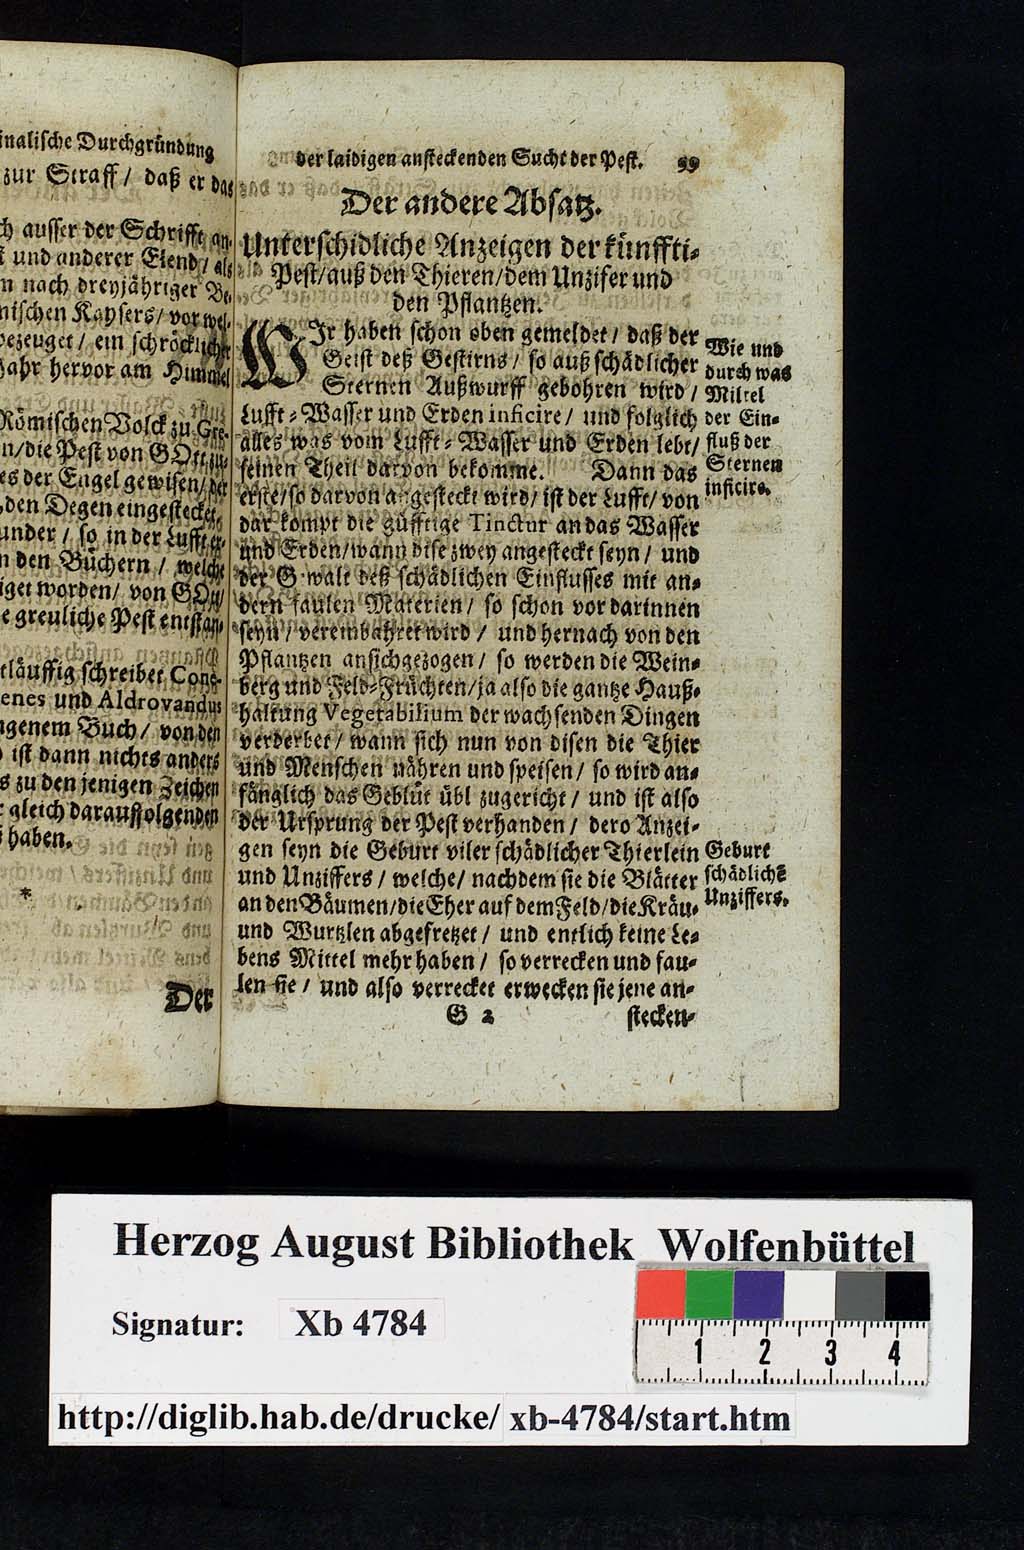 inalische Durchgründung
zur Straff / daß er das
ch ausser der Schrifft an-
und anderer Elend / als
n nach dreyjähriger Be-
nischen Kaysers / vor wel-
bezeuget / ein schröcklicher
Jahr hervor am Himmel
Römischen Volck zu
n / die Pest von GOtt
es der Engel gewisen / der
den Degen eingestecket
under / so in der Lufft er-
n den Büchern / welche
iget worden / von GOtt
e greuliche Pest entstan-
tläuffig schreibet
enes und Aldrovandus
ngenem Buch / von den
ist dann nichts anders
s zu den jenigen Zeichen
gleich darauffolgenden
haben.
*
Der
der laidigen ansteckenden Sucht der Pest. 99
Der andere Absatz.
Unterschidliche Anzeigen der künffti-
Pest / auß den Thieren / dem Unzifer und
den Pflantzen.
WIr haben schon oben gemeldet / daß der
Geist deß Gestirns / so auß schädlicher
Sternen Außwurff gebohren wird /
Lufft-Wasser und Erden inficire / und folglich
alles was vom Lufft-Wasser und Erden lebt /
seinen Theil darvon bekomme. Dann das
erste / so darvon angesteckt wird / ist der Lufft / von
dar kompt die güfftige Tinctur an das Wasser
und Erden / wann dise zwey angesteckt seyn / und
der Gwalt deß schädlichen Einflusses mit an-
dern faulen Materien / so schon vor darinnen
seyn / vereinbahret wird / und hernach von den
Pflantzen ansichgezogen / so werden die Wein-
berg und Feld-Früchten / ja also die gantze Hauß-
haltung Vegetabilium der wachsenden Dingen
verderbet / wann sich nun von disen die Thier
und Menschen nähren und speisen / so wird an-
fänglich das Geblüt übl zugericht / und ist also
der Ursprung der Pest verhanden / dero Anzei-
gen seyn die Geburt viler schädlicher Thierlein
und Unziffers / welche / nachdem sie die Blätter
an den Bäumen / die Eher auf dem Feld / die Kräu-
und Wurtzlen abgefretzet / und entlich keine Le-
bens Mittel mehr haben / so verrecken und fau-
len sie / und also verrecket erwecken sie jene an-
G 2 stecken-
Wie und
durch was
Mittel
der Ein-
fluß der
Sternen
inficire.
Geburt
schädliche
Unziffers.
Herzog August Bibliothek Wolfenbüttel
Signatur: Xb 4784
1 2 3 4
http://diglib.hab.de/drucke/ xb-4784/start.htm